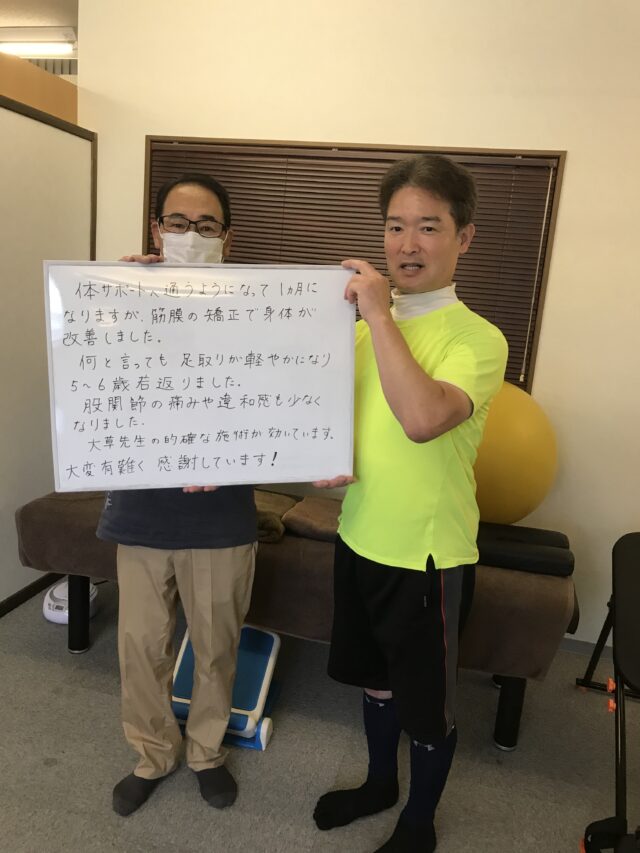 体サポートへ通うようになって 1ヵ月に
なりますが、筋膜の矯正で身体が
改善しました。
何と言っても 足取りが軽やかになり
5〜6歳若返りました。
股関節の痛みや違和感も少なく
なりました。
大草先生の的確な施術が効いています。
大変有難く 感謝しています！